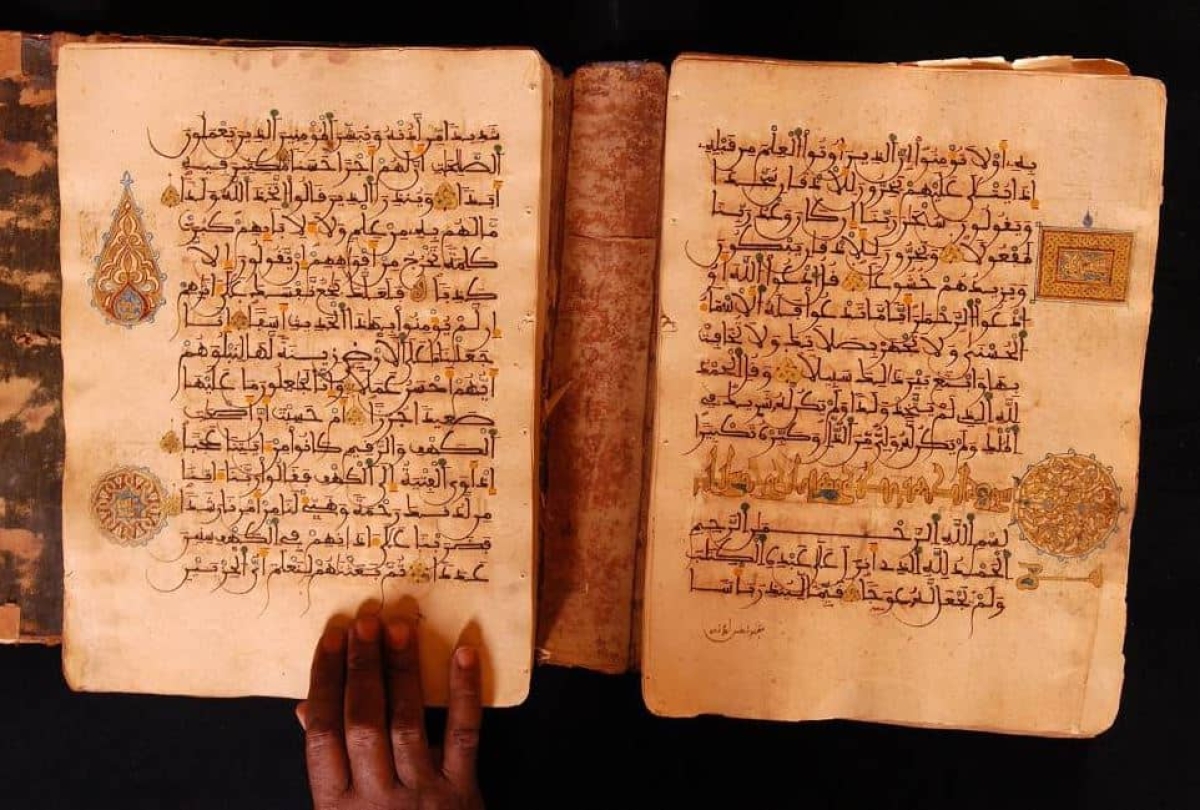 به أو لا تؤمنوا إن الذين أوتوا العلم من قبله
إذا يتلى عليهم يخرون للأذقان سجدا
ويقولون سبحن ربنا إن كان وعد ربنا
لمفعولا ويخرون للأذقان يبكون
ويزيدهم خشوعا قل ادعوا الله أو
ادعوا الرحمن أيا ما تدعوا فله الأسماء
الحسنى ولا تجهر بصلاتك ولا تخافت
بها وابتغ بين ذلك سبيلا وقل الحمد
لله الذي لم يتخذ ولدا ولم يكن له شريك في
الملك ولم يكن له ولي من الذل وكبره تكبيرا
بسم الله الرحمن الرحيم
الحمد لله الذي أنزل على عبده الكتب
ولم يجعل له عوجا قيما لينذر بأسا
شديدا من لدنه ويبشر المؤمنين الذين يعملون
الصلحت أن لهم أجرا حسنا مكثين فيه
أبدا وينذر الذين قالوا اتخذ الله ولدا
ما لهم به من علم ولا لآبائهم كبرت
كلمة تخرج من أفوههم إن يقولون إلا
كذبا فلعلك بخع نفسك على آثرهم
إن لم يؤمنوا بهذا الحديث أسفا إنا
جعلنا ما على الأرض زينة لها لنبلوهم
أيهم أحسن عملا وإنا لجعلون ما عليها
صعيدا جرزا أم حسبت أن أصحب
الكهف والرقيم كانوا من آيتنا عجبا
إذ أوى الفتية إلى الكهف فقالوا ربنا آتنا
من لدنك رحمة وهيئ لنا من أمرنا رشدا
فضربنا على آذانهم في الكهف سنين
عددا ثم بعثنهم لنعلم أي الحزبين